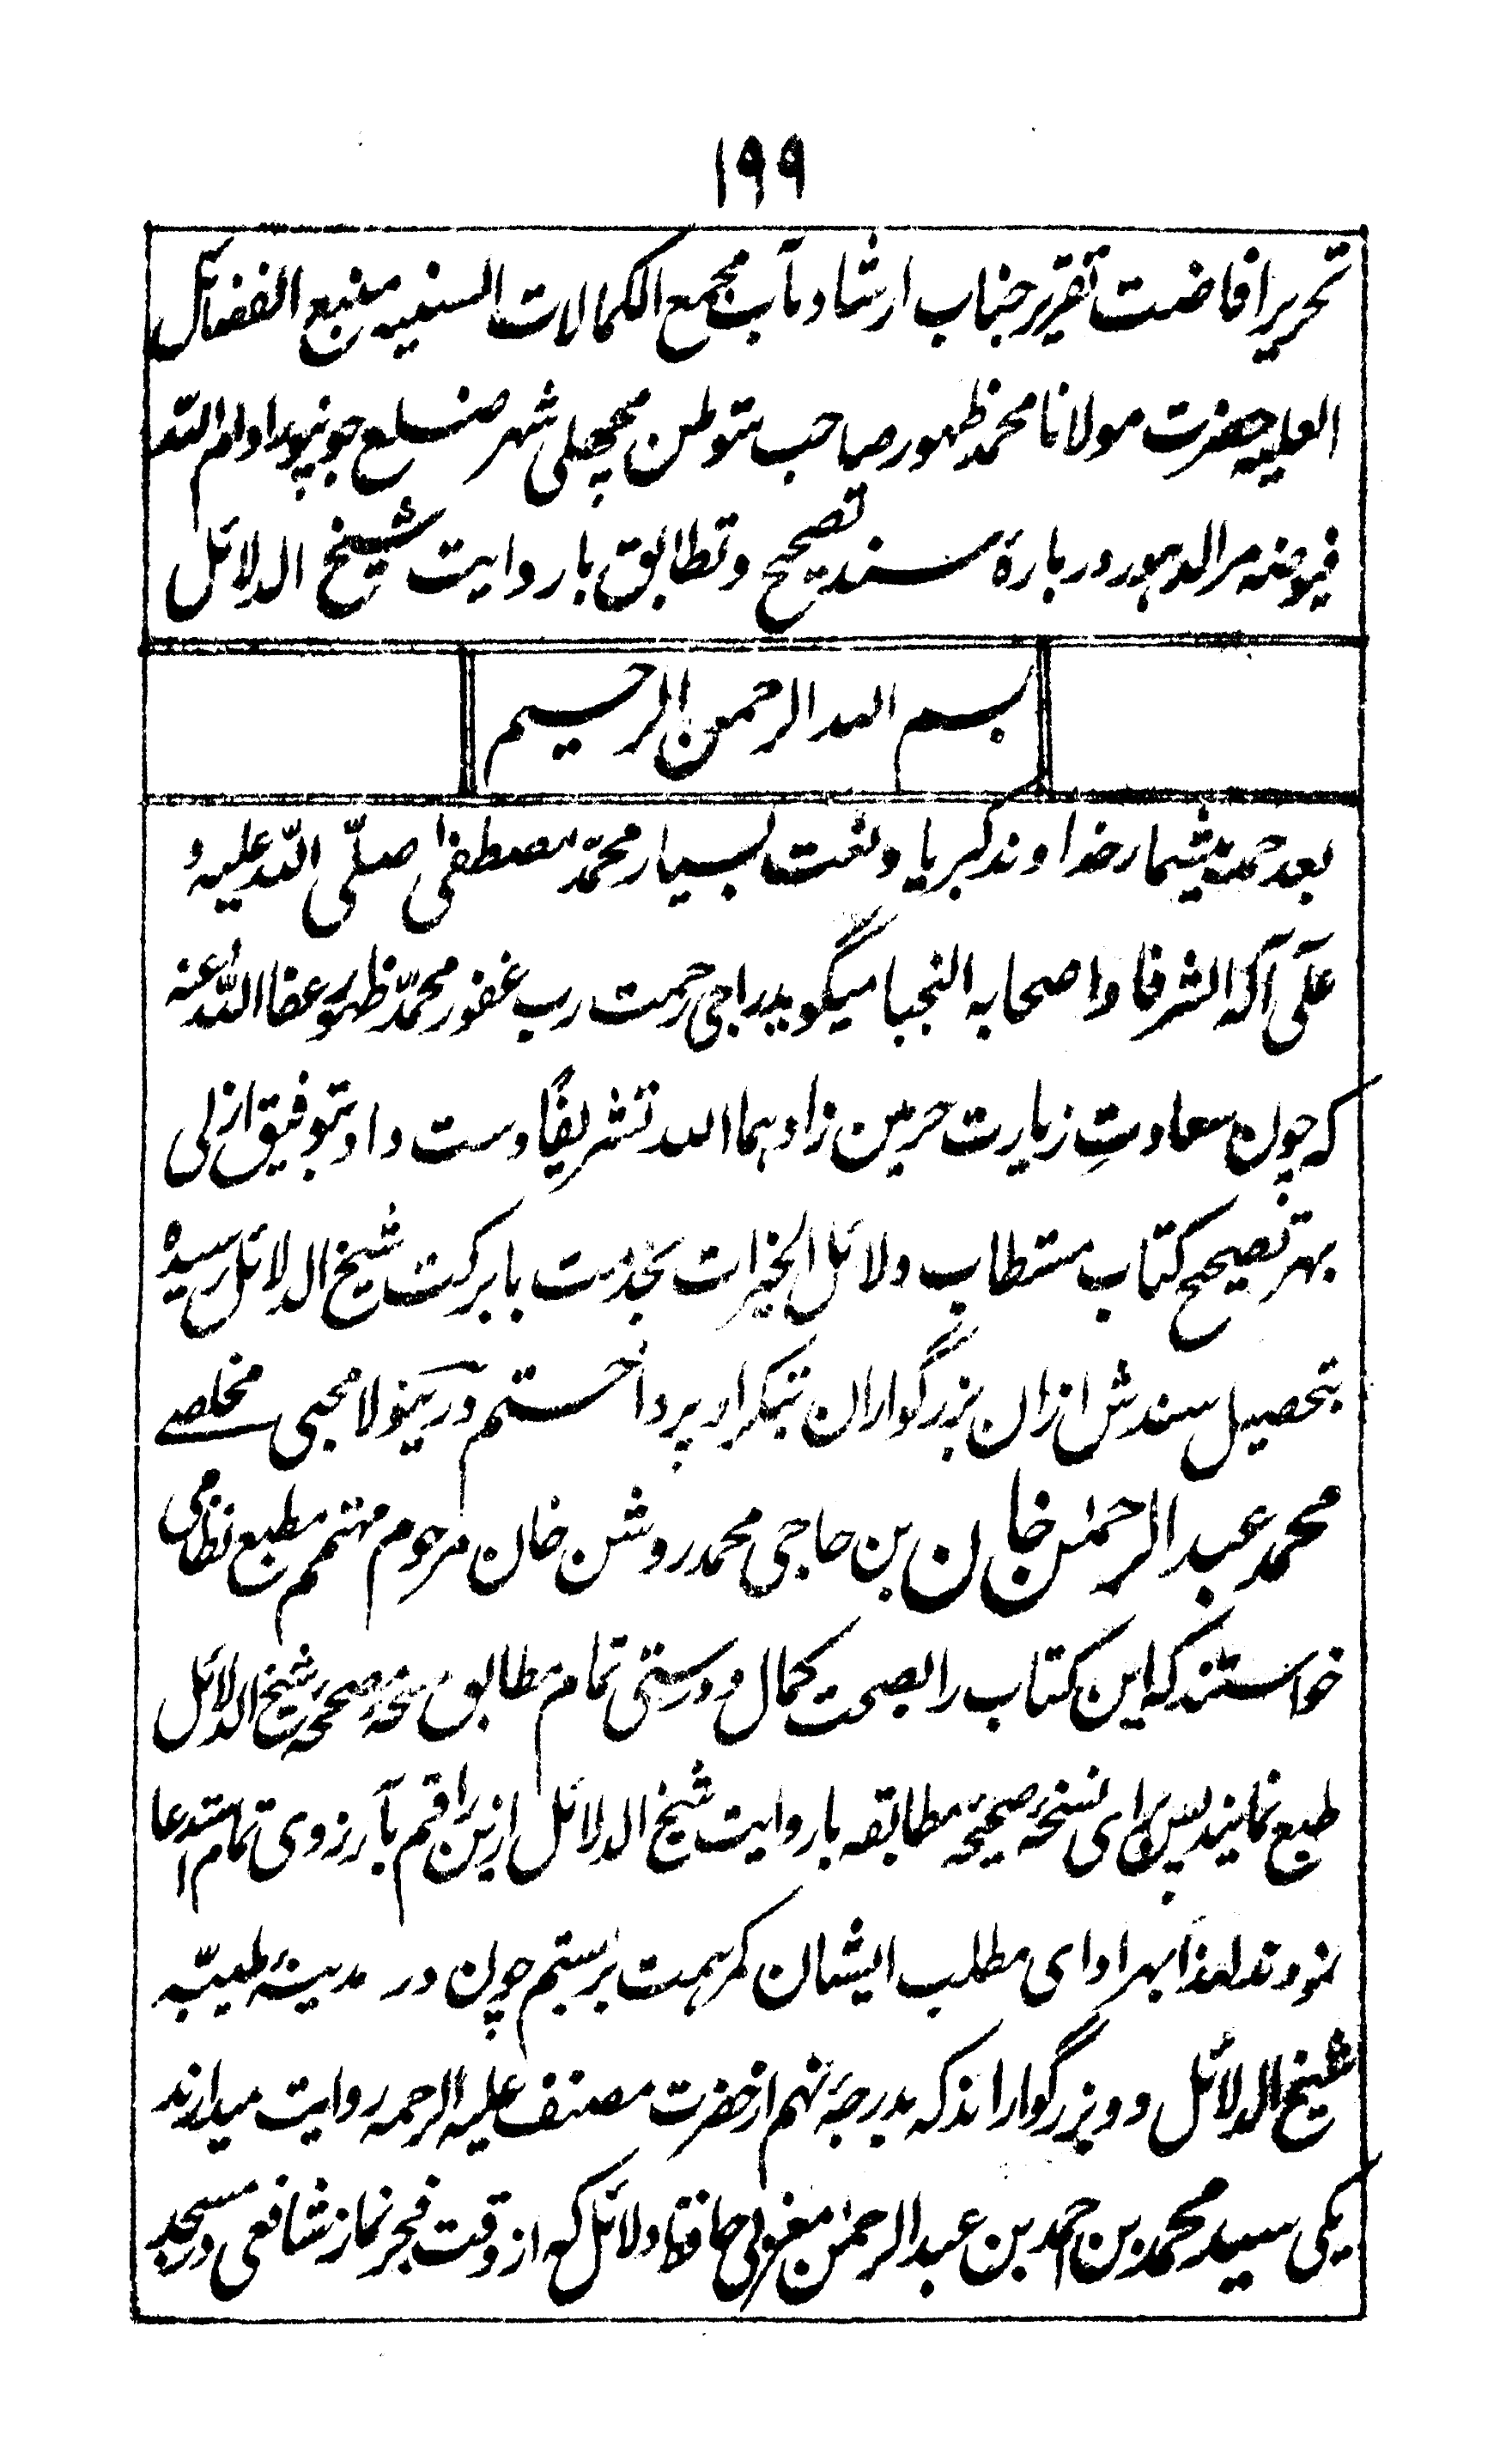 ۱۹۹
تحریر افاضت تقریر جناب ارشاد مآب مجمع الکمالات السنیه منبع الفضائل
العلیه حضرت مولانا محمد ظہور صاحب متوطن مچھلی شہر ضلع جونپور ادام اللّٰہ
فیوضه مر الدہور دربارهٔ سند تصحیح و تطابق با روایت شیخ الدلائل
بسم الله الرحمن الرحیم
بعد حمد بیشمار خداوند کبریا و نعت بسیار محمّد مصطفیٰ صلّی اللّٰه علیه و
علیٰ آله الشرفا و اصحابه النجبا میگوید راجی رحمت رب غفور محمّد ظہور عفا اللّٰه عنه
که چون سعادتِ زیارت حرمین زادہما الله تشریفًا دست داد بتوفیق ازلی
بہر تصحیح کتاب مستطاب دلائل الخیرات بخدمت بابرکت شیخ الدلائل رسیده
بتحصیل سندش ازان بزرگواران بتکرار پرداختم درینولا محبی مخلصے
محمد عبد الرحمٰن خان بن حاجی محمد روشن خان مرحوم مہتمم مطبع نظامی
خواستند که این کتاب را بصحت کمال و درستی تمام مطابق نسخهٔ صحیحهٔ شیخ الدلائل
طبع نمایند پس برای نسخهٔ صحیحهٔ مطابقه با روایت شیخ الدلائل ازین راقم بآرزوی تمام استدعا
نمودند لہذا بہر ادای مطلب ایشان کمر ہمت بربستم چون در مدینهٔ طیبّه
شیخ الدلائل دو بزرگوار اند که بدرجهٔ نہم از حضرت مصنف علیه الرحمه روایت میدارند
یکی سید محمد بن احمد بن عبد الرحمٰن مغربی حافظ دلائل که از وقت فجر نماز شافعی در مسجد